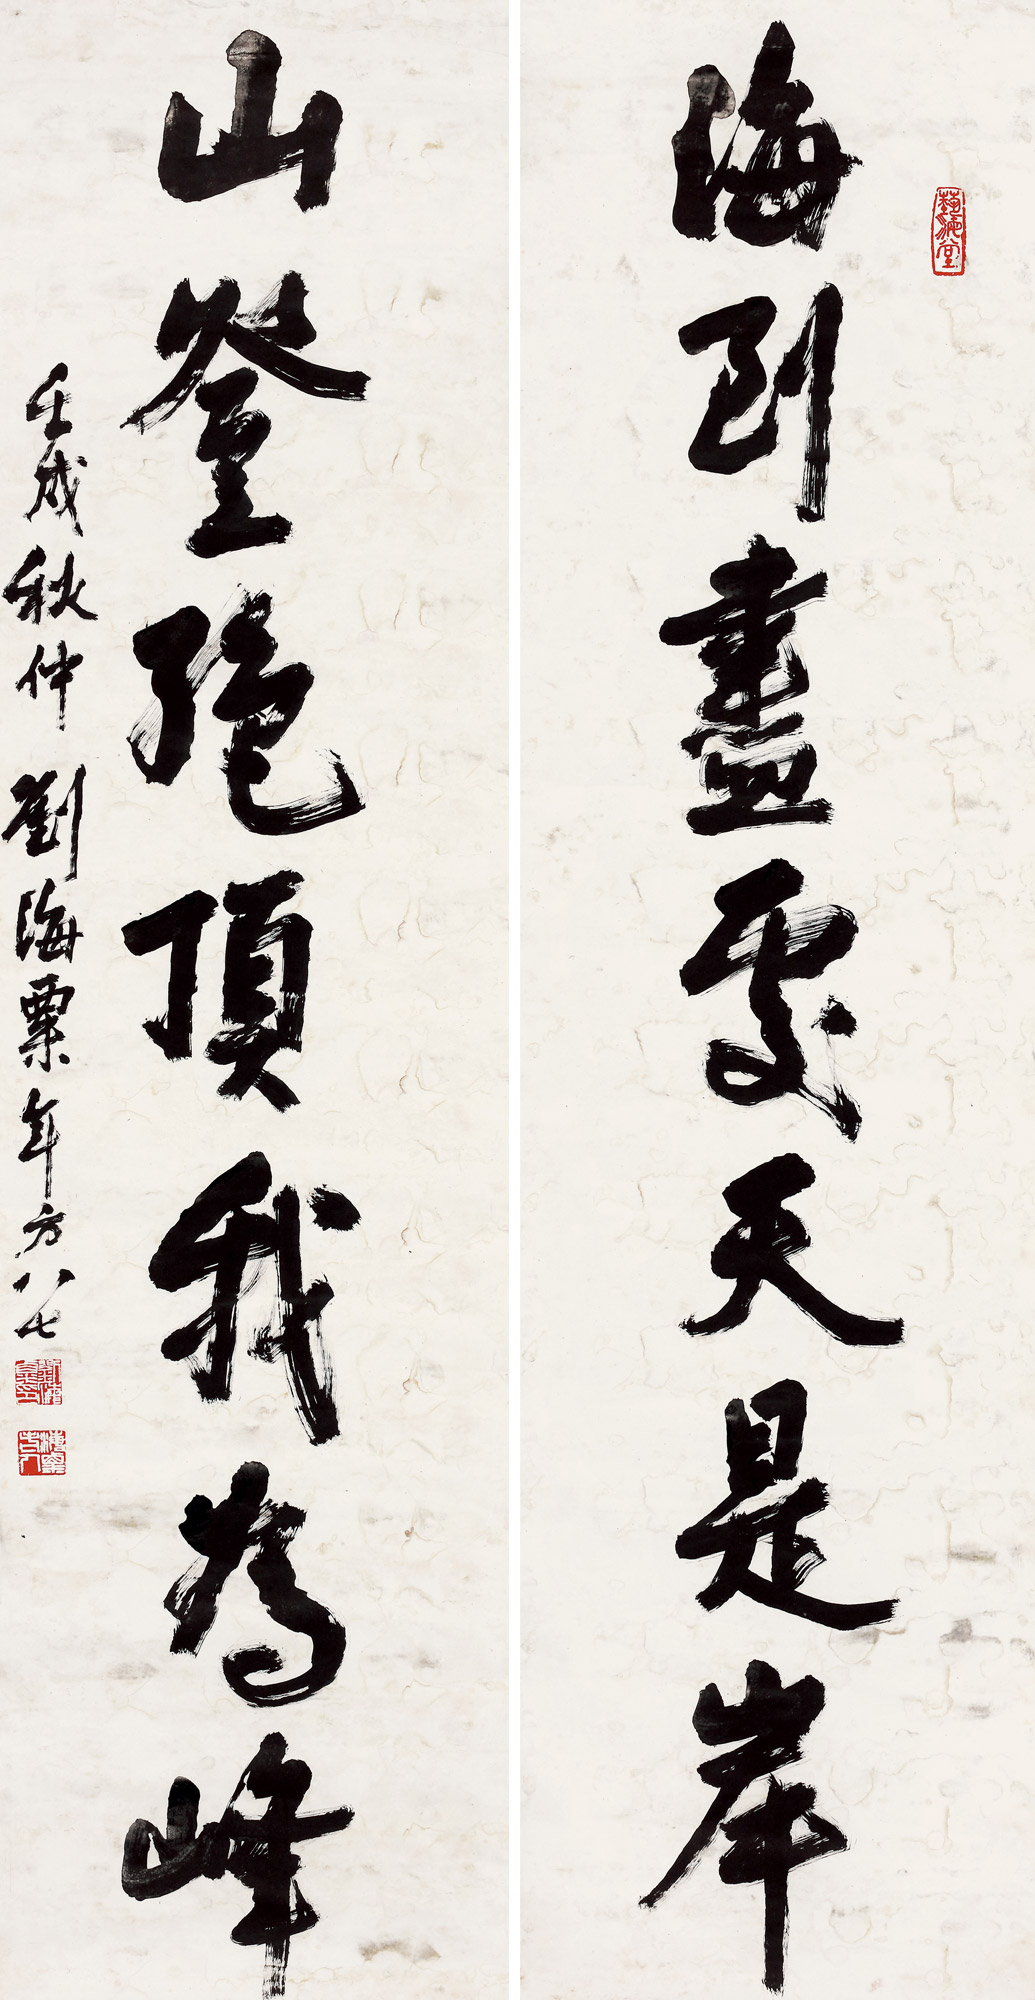 海到盡處天是岸
藝海堂
山登絕頂我為峰
壬戌秋仲劉海粟年方八七
劉海粟印